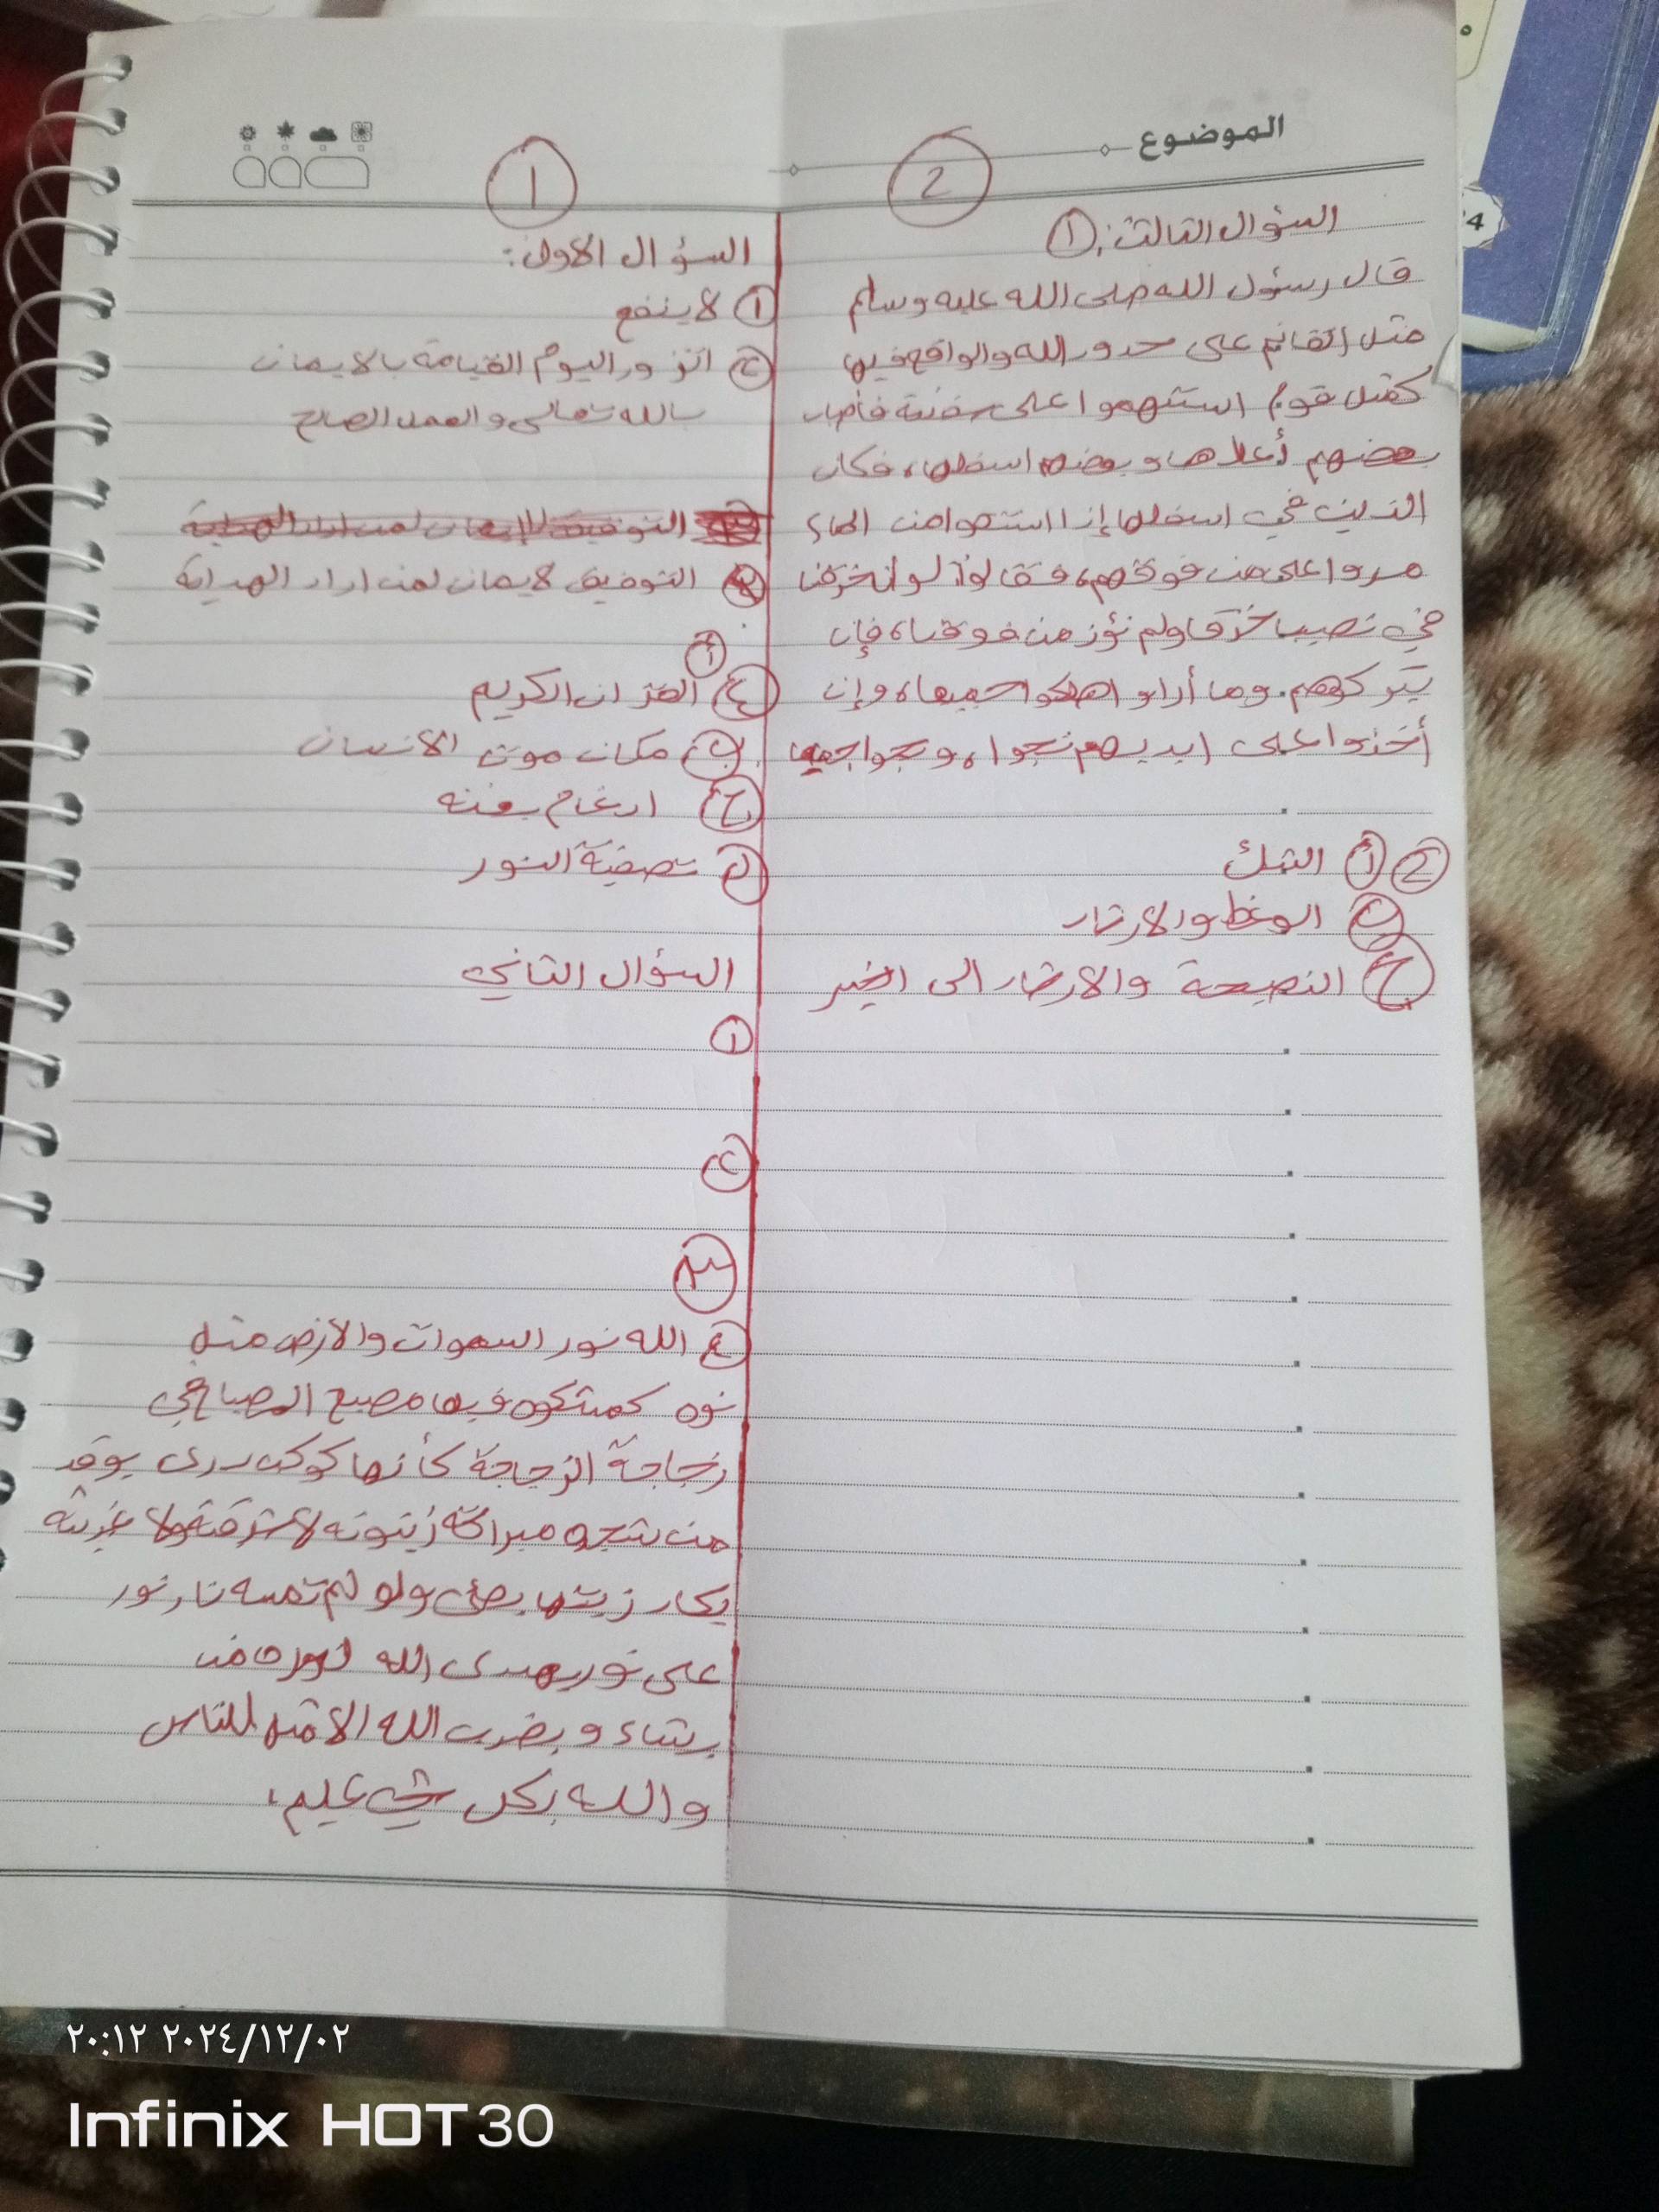 الموضوع
2
السؤال الثالث: ①
قال رسول الله صلى الله عليه وسلم
مثل القائم على حدود الله والواقع فيها
كمثل قوم استهموا على سفينة فأصاب
بعضهم أعلاها وبعضهم اسفلها، فكان
الذين في اسفلها إذا استقوا من الماء
مروا على من فوقهم، فقالوا لو أنخرقنا
في نصيبنا خرقا ولم نؤذ من فوقنا، فإن
يتركوهم. وما أرادو اهلكوا جميعا، وإن
أخذوا على ايديهم نجوا، ونجوا جميعا
② أ الشك
ب الوعظ والارشاد
ج النصيحة والارشاد الى الخير
1
السؤال الاول:
① لاينفع
② اتزود اليوم القيامة بالايمان
بالله تعالى والعمل الصالح
التوفيق للإيمان لمن اراد الهداية
③ التوفيق لايمان لمن اراد الهداية
أ
④ القران الكريم
ب مكان موت الانسان
ج ادغام بغنه
د تصفية النور
السؤال الثاني
①
②
③
④ الله نور السموات والارض مثل
نوره كمشكوه فيها مصبح المصباح في
زجاجة الزجاجة كأنها كوكب درى يوقد
من شجره مباركة زيتونه لا شرقية ولا غربية
يكاد زيتها يضئ ولو لم تمسه نار نور
على نور يهدى الله لنوره من
يشاء ويضرب الله الامثل للناس
والله بكل شي عليم،
٢٠:١٢ ٢٠٢٤/١٢/٠٢
Infinix HOT 30